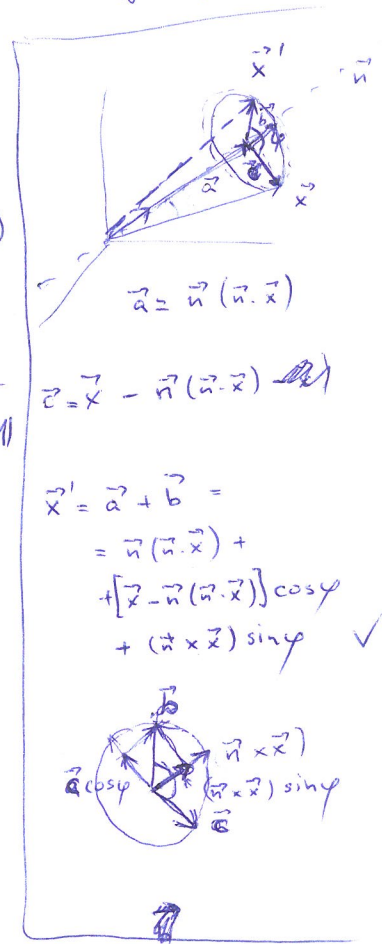 x⃗'
n⃗
b⃗
φ
a⃗
c⃗
x⃗
a⃗ = n⃗ (n⃗ . x⃗)
c⃗ = x⃗ - n⃗ (n⃗ . x⃗)
x⃗' = a⃗ + b⃗ =
= n⃗ (n⃗ . x⃗) +
+ [x⃗ - n⃗ (n⃗ . x⃗)] cosφ
+ (n⃗ × x⃗) sinφ ✓
b⃗
n⃗ × x⃗)
c⃗ cosφ (n⃗ × x⃗) sinφ
c⃗